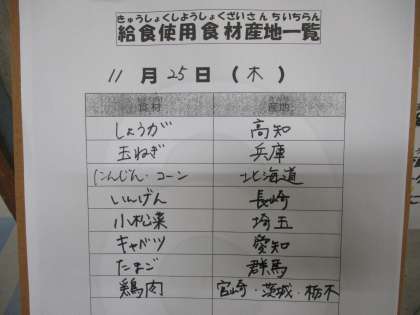 きゅうしょくしようしょくざいさんちいちらん
給食使用食材産地一覧
11月25日(木)
食材 産地
しょうが 高知
玉ねぎ 兵庫
にんじん・コーン 北海道
いんげん 長崎
小松菜 埼玉
キャベツ 愛知
たまご 群馬
鶏肉 宮崎・茨城・栃木